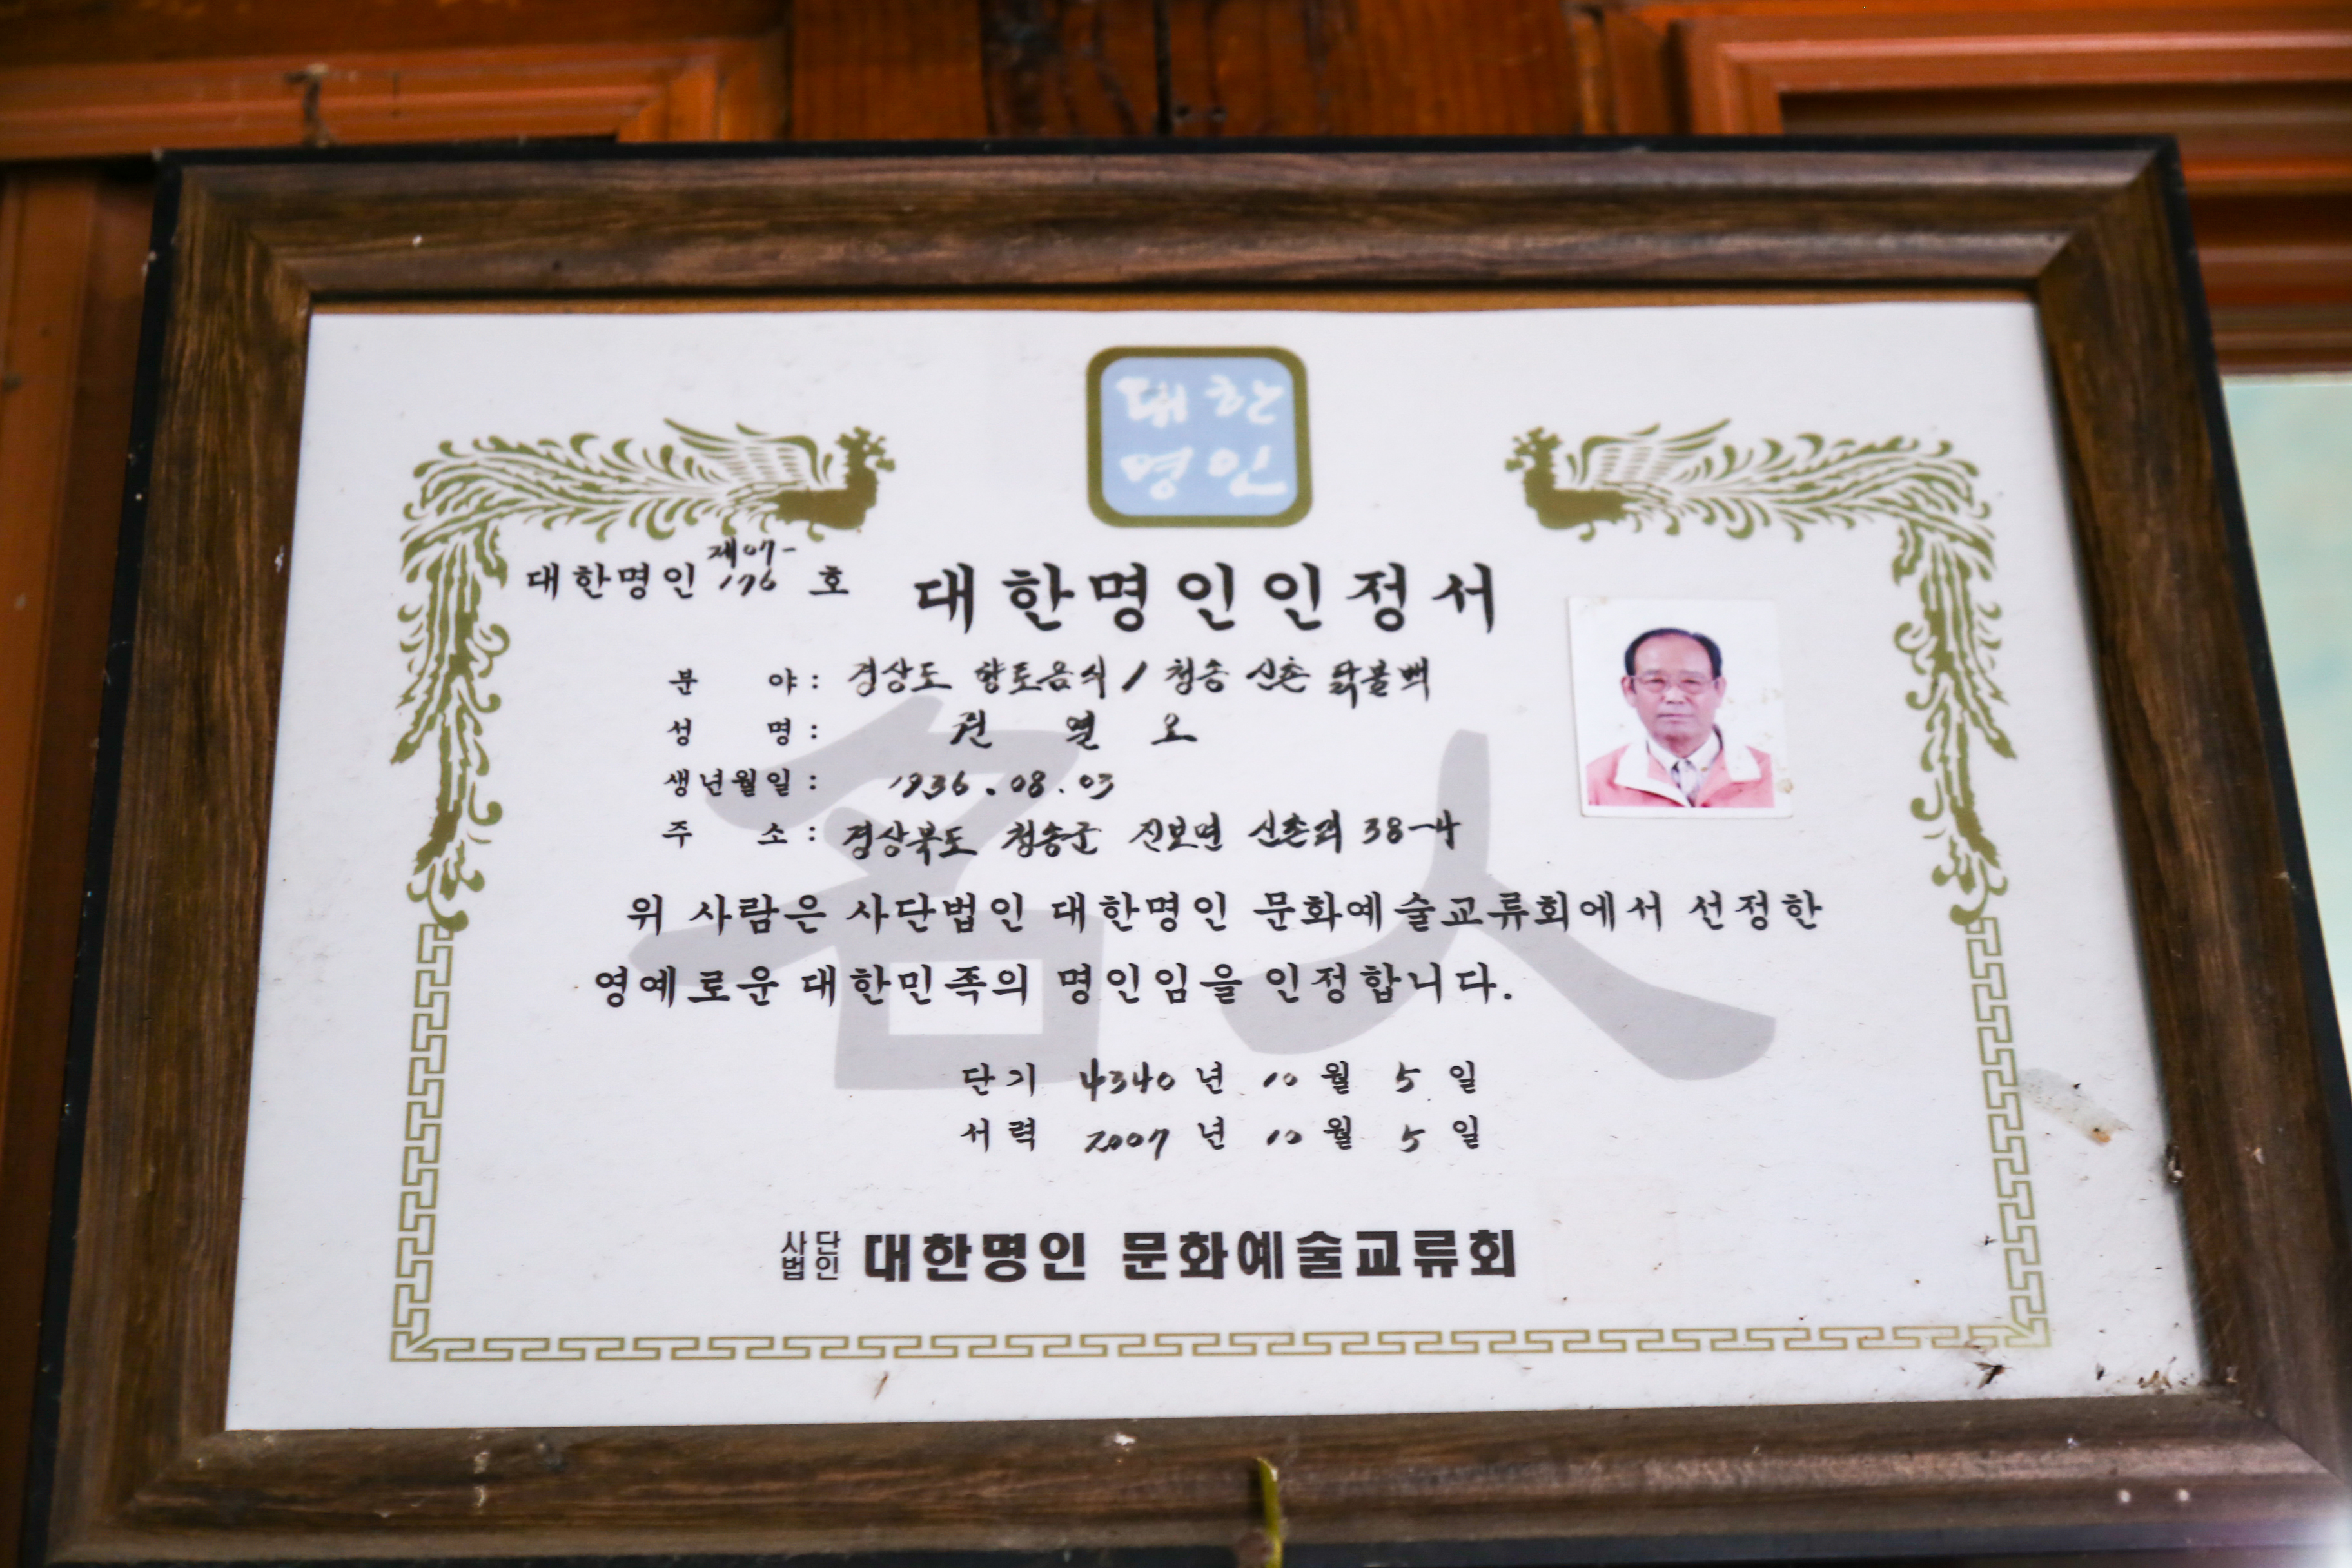 대한
명인
대한명인 제07-176 호
대한명인인정서
분 야 : 경상도 향토음식 / 청송 신촌 닭불백
성 명 : 권 열 오
생년월일 : 1936.08.03
주 소 : 경상북도 청송군 진보면 신촌리 38-4
위 사람은 사단법인 대한명인 문화예술교류회에서 선정한
영예로운 대한민족의 명인임을 인정합니다.
名人
단기 4340 년 10 월 5 일
서력 2007 년 10 월 5 일
사단법인 대한명인 문화예술교류회